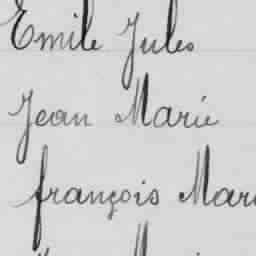 Emile Jules
Jean Marie
françois Mari